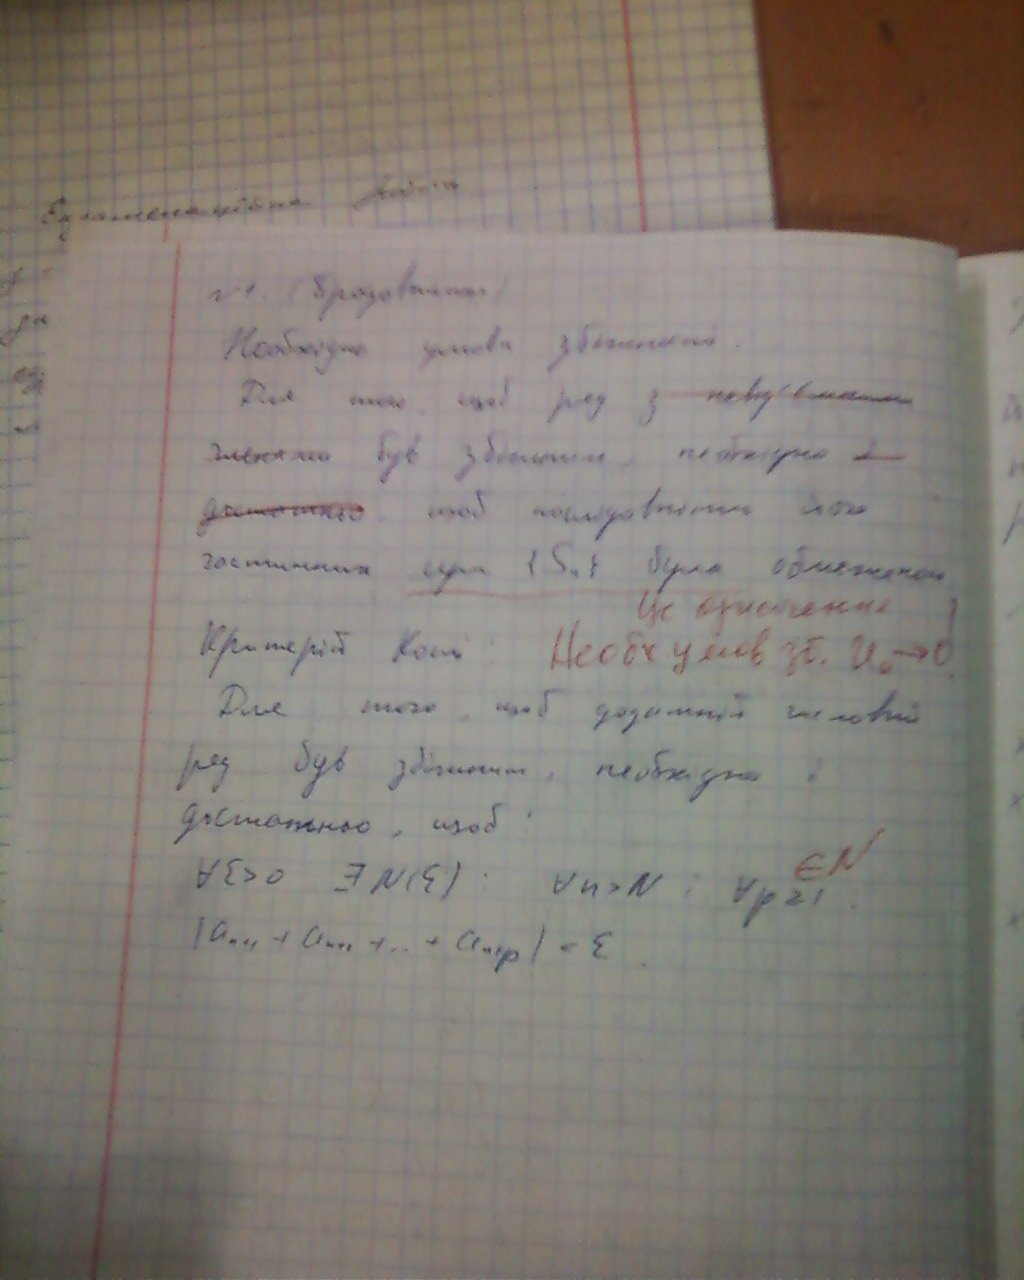 Екзаменаційна робота
№1. (Продовження)
Необхідна умова збіжності.
Для того, щоб ряд з невід'ємними
членами був збіжним, необхідно і
достатньо, щоб послідовність його
частинних сум {Sₙ} була обмеженою
Це означення
Критерій Коші: Необх умов зб. Uₙ→0!
Для того, щоб додатній числовий
ряд був збіжним, необхідно і
достатньо, щоб:
∀ε>0 ∃N(ε): ∀n>N: ∀p≥1: ∈N
|aₙ₊₁ + aₙ₊₁ + ... + aₙ₊ₚ| < ε.